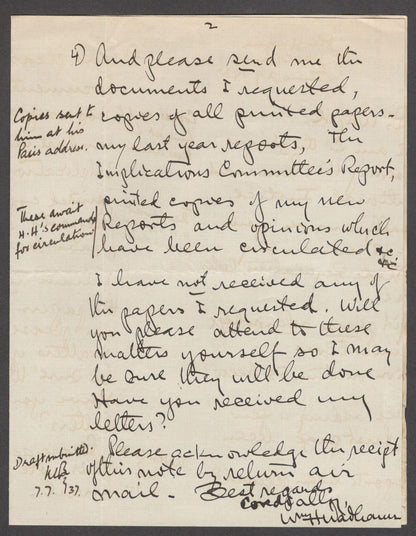 2
4) And please send me the
documents I requested,
copies of all printed papers -
my last year reports, The
Implications Committee's Report,
printed copies of my new
Reports and opinions which
have been circulated &c
Copies sent to
him at his
Paris address.
These await
H.H's commands
for circulation
I have not received any of
the papers I requested. Will
you please attend to these
matters yourself so I may
be sure they will be done
Have you received my
letters?
Please acknowledge the receipt
of this note by return air
mail - Best regards
Cordially,
Wm H Wadhams
Draft submitted.
7.7.37.